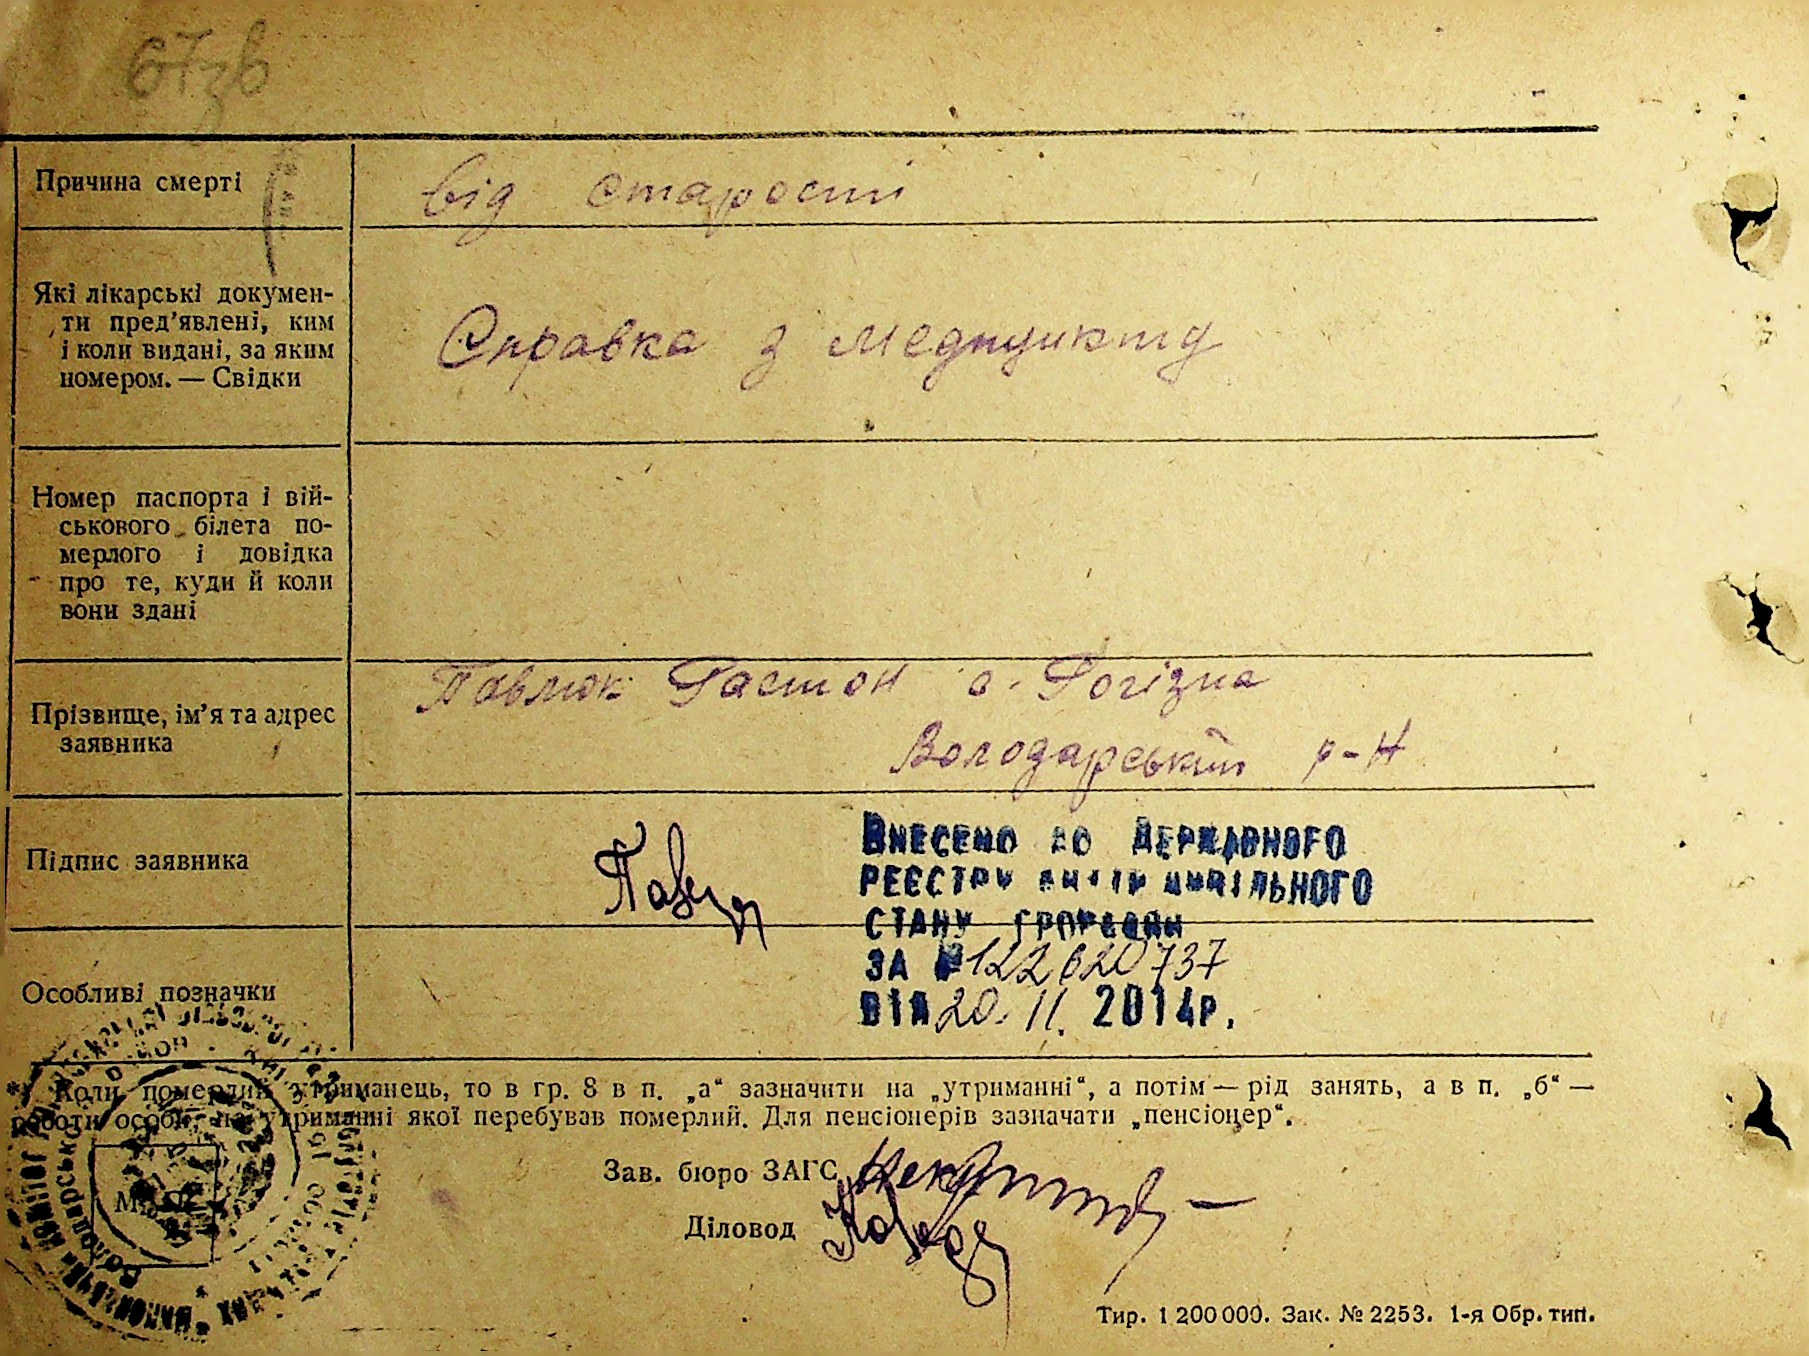 67зв
Причина смерті
від старости
Які лікарські докумен-
ти пред'явлені, ким
і коли видані, за яким
номером. — Свідки
Справка з медпункту
Номер паспорта і вій-
ськового білета по-
мерлого і довідка
про те, куди й коли
вони здані
Прізвище, ім'я та адрес
заявника
Павлюк с. Рогізна
Володарський р-н
Підпис заявника
Внесено до Державного
реєстру актів цивільного
стану громадян
за № 122620737
від 20. 11. 2014р.
Особливі позначки
*) Коли померлий утриманець, то в гр. 8 в п. „а“ зазначити на „утриманні“, а потім — рід занять, а в п. „б“ —
роботи особи, на утриманні якої перебував померлий. Для пенсіонерів зазначати „пенсіонер“.
Зав. бюро ЗАГС
Діловод
Тир. 1 200 000. Зак. № 2253. 1-я Обр. тип.